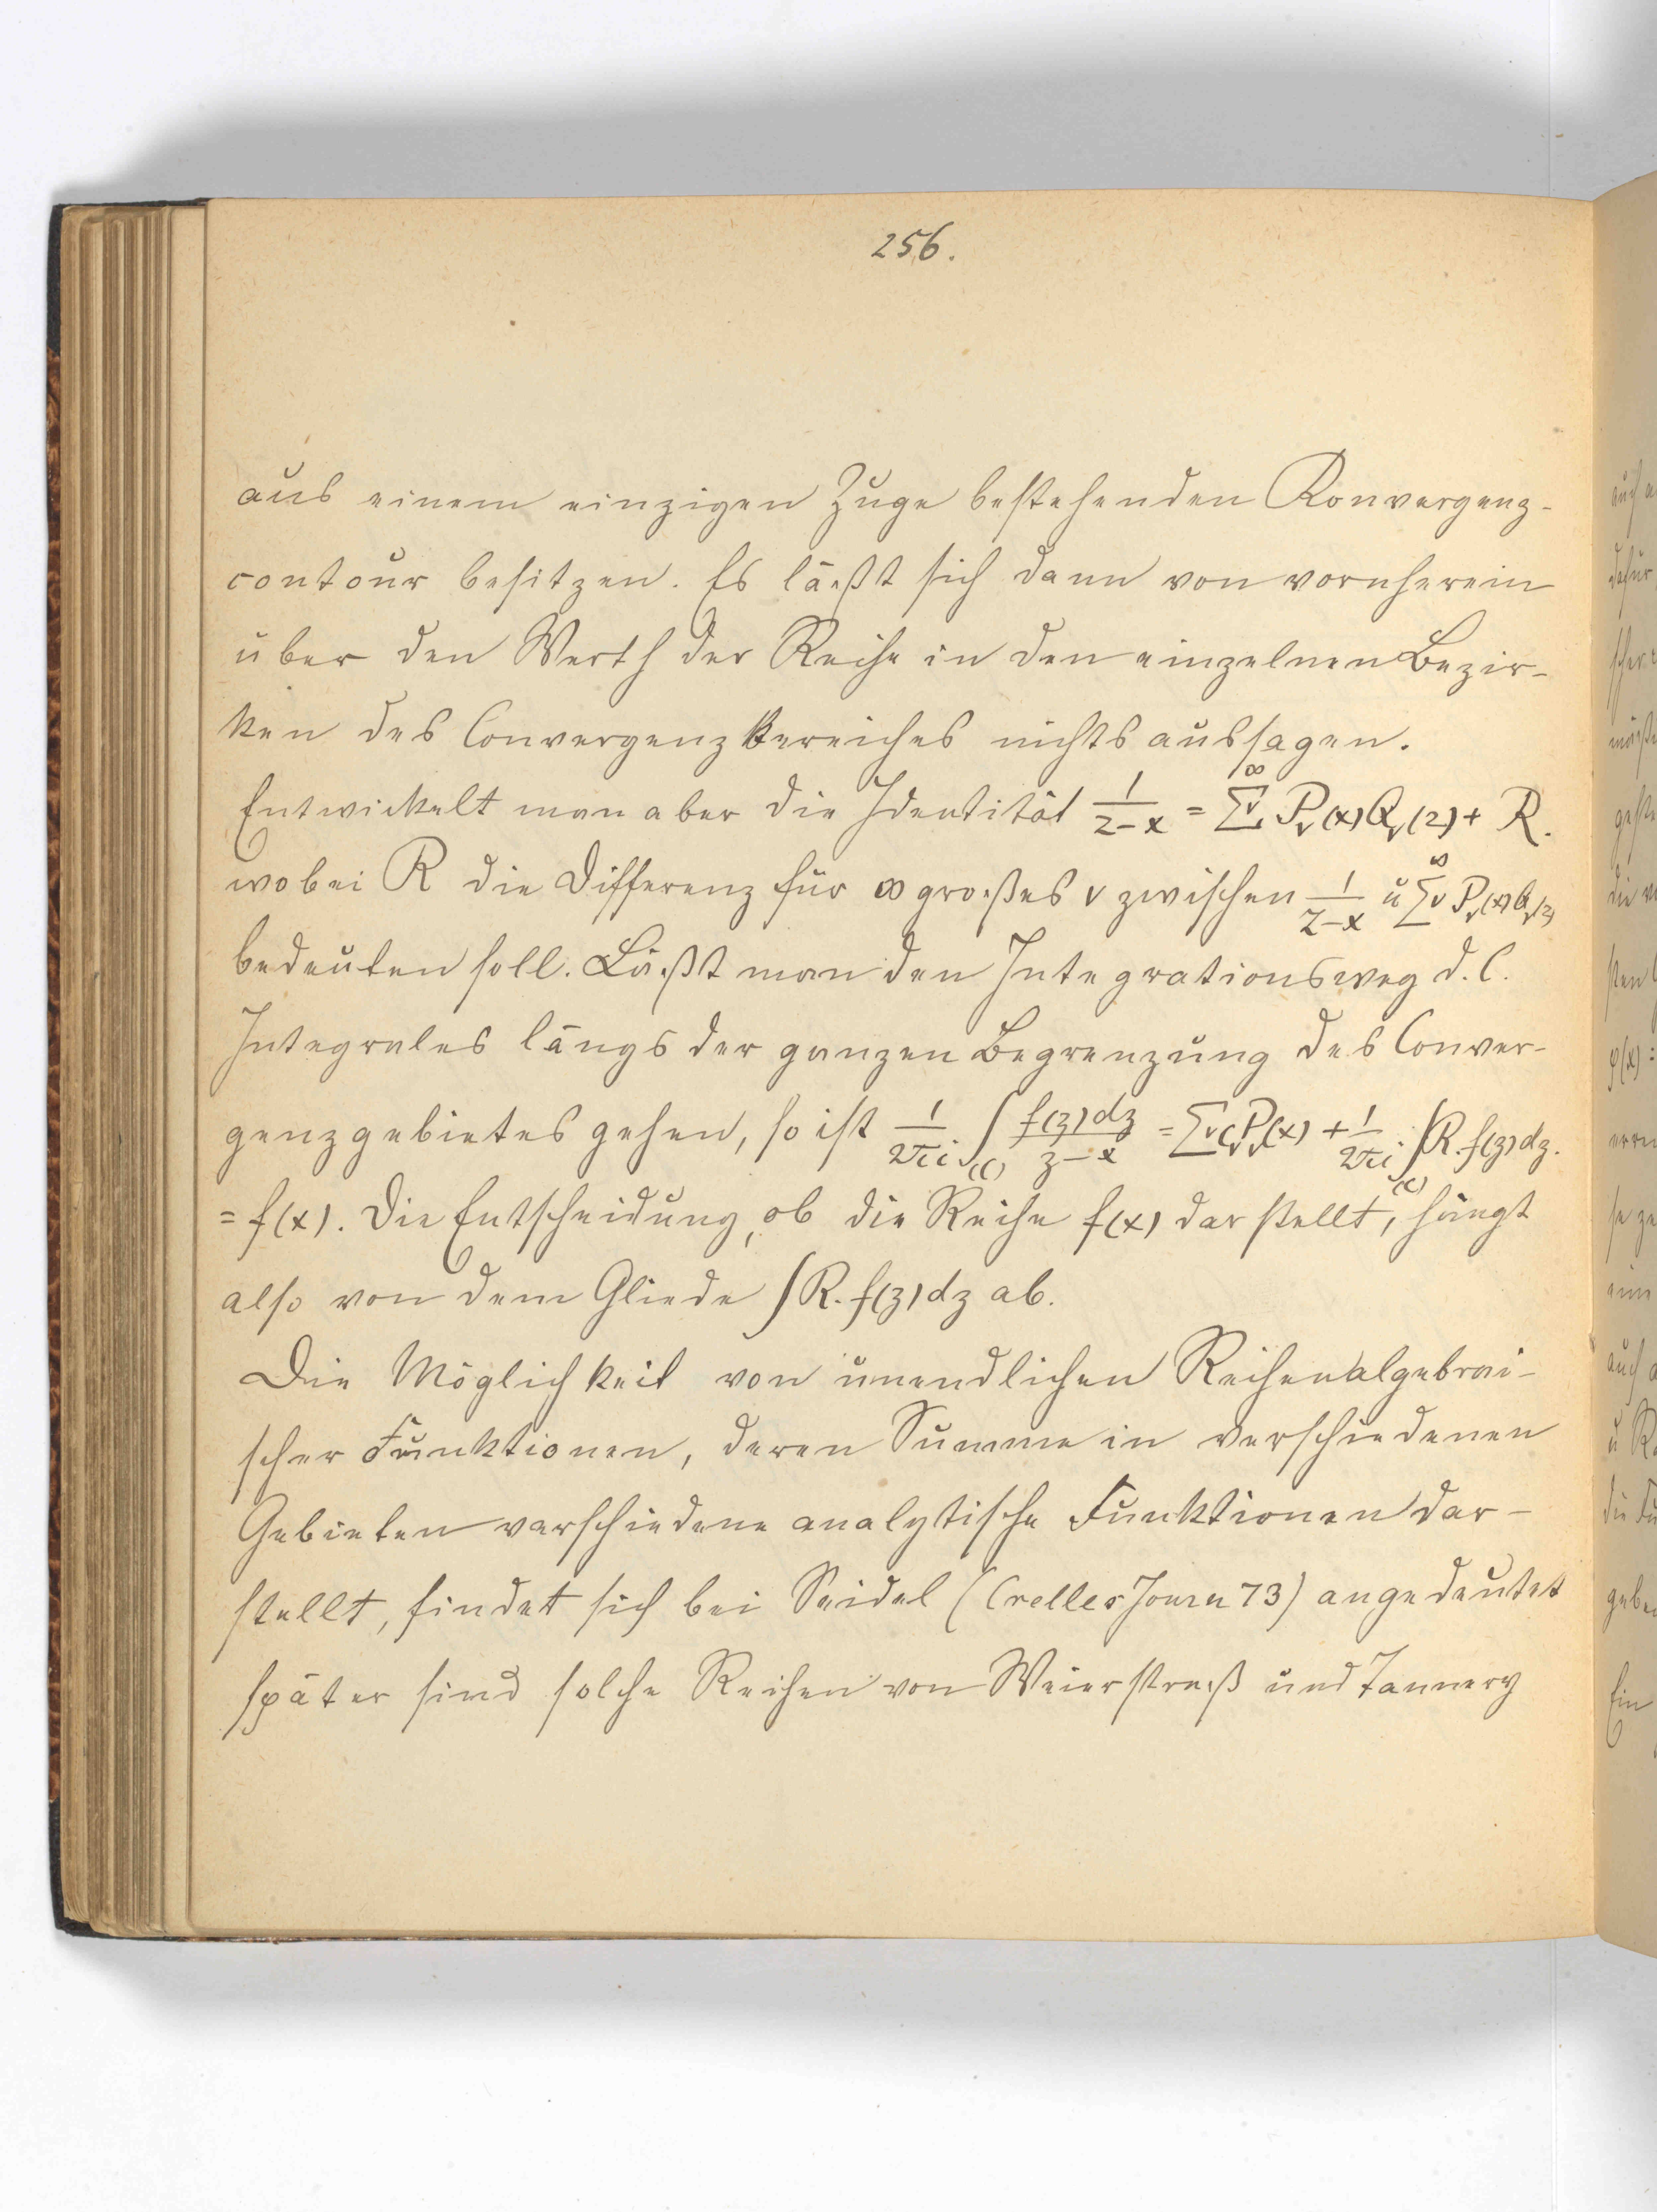 256.
aus einem einzigen Zuge bestehenden Konvergenz-
contour besitzen. Es läßt sich dann von vornherein
über den Werth der Reihe in den einzelnen Bezir-
ken des Convergenzbereiches nichts aussagen.
Entwickelt man aber die Identität 1/(z-x) = Σ_ν^∞ P_ν(x) Q_ν(z) + R.
wobei R die Differenz für ∞ großes ν zwischen 1/(z-x) u Σ_ν^∞ P_ν(x) Q_ν(z)
bedeuten soll. Läßt man den Integrationsweg d. C.
Integrales längs der ganzen Begrenzung des Conver-
genzgebietes gehen, so ist 1/(2πi) ∫_(C) f(z)dz/(z-x) = Σ_ν C_ν P_ν(x) + 1/(2πi) ∫_(C) R.f(z)dz.
= f(x). Die Entscheidung, ob die Reihe f(x) darstellt, hängt
also von dem Gliede ∫R.f(z)dz ab.
Die Möglichkeit von unendlichen Reihen algebrai-
scher Funktionen, deren Summe in verschiedenen
Gebieten verschiedene analytische Funktionen dar-
stellt, findet sich bei Seidel (Crelles Journ 73) angedeutet
später sind solche Reihen von Weierstraß und Tannery